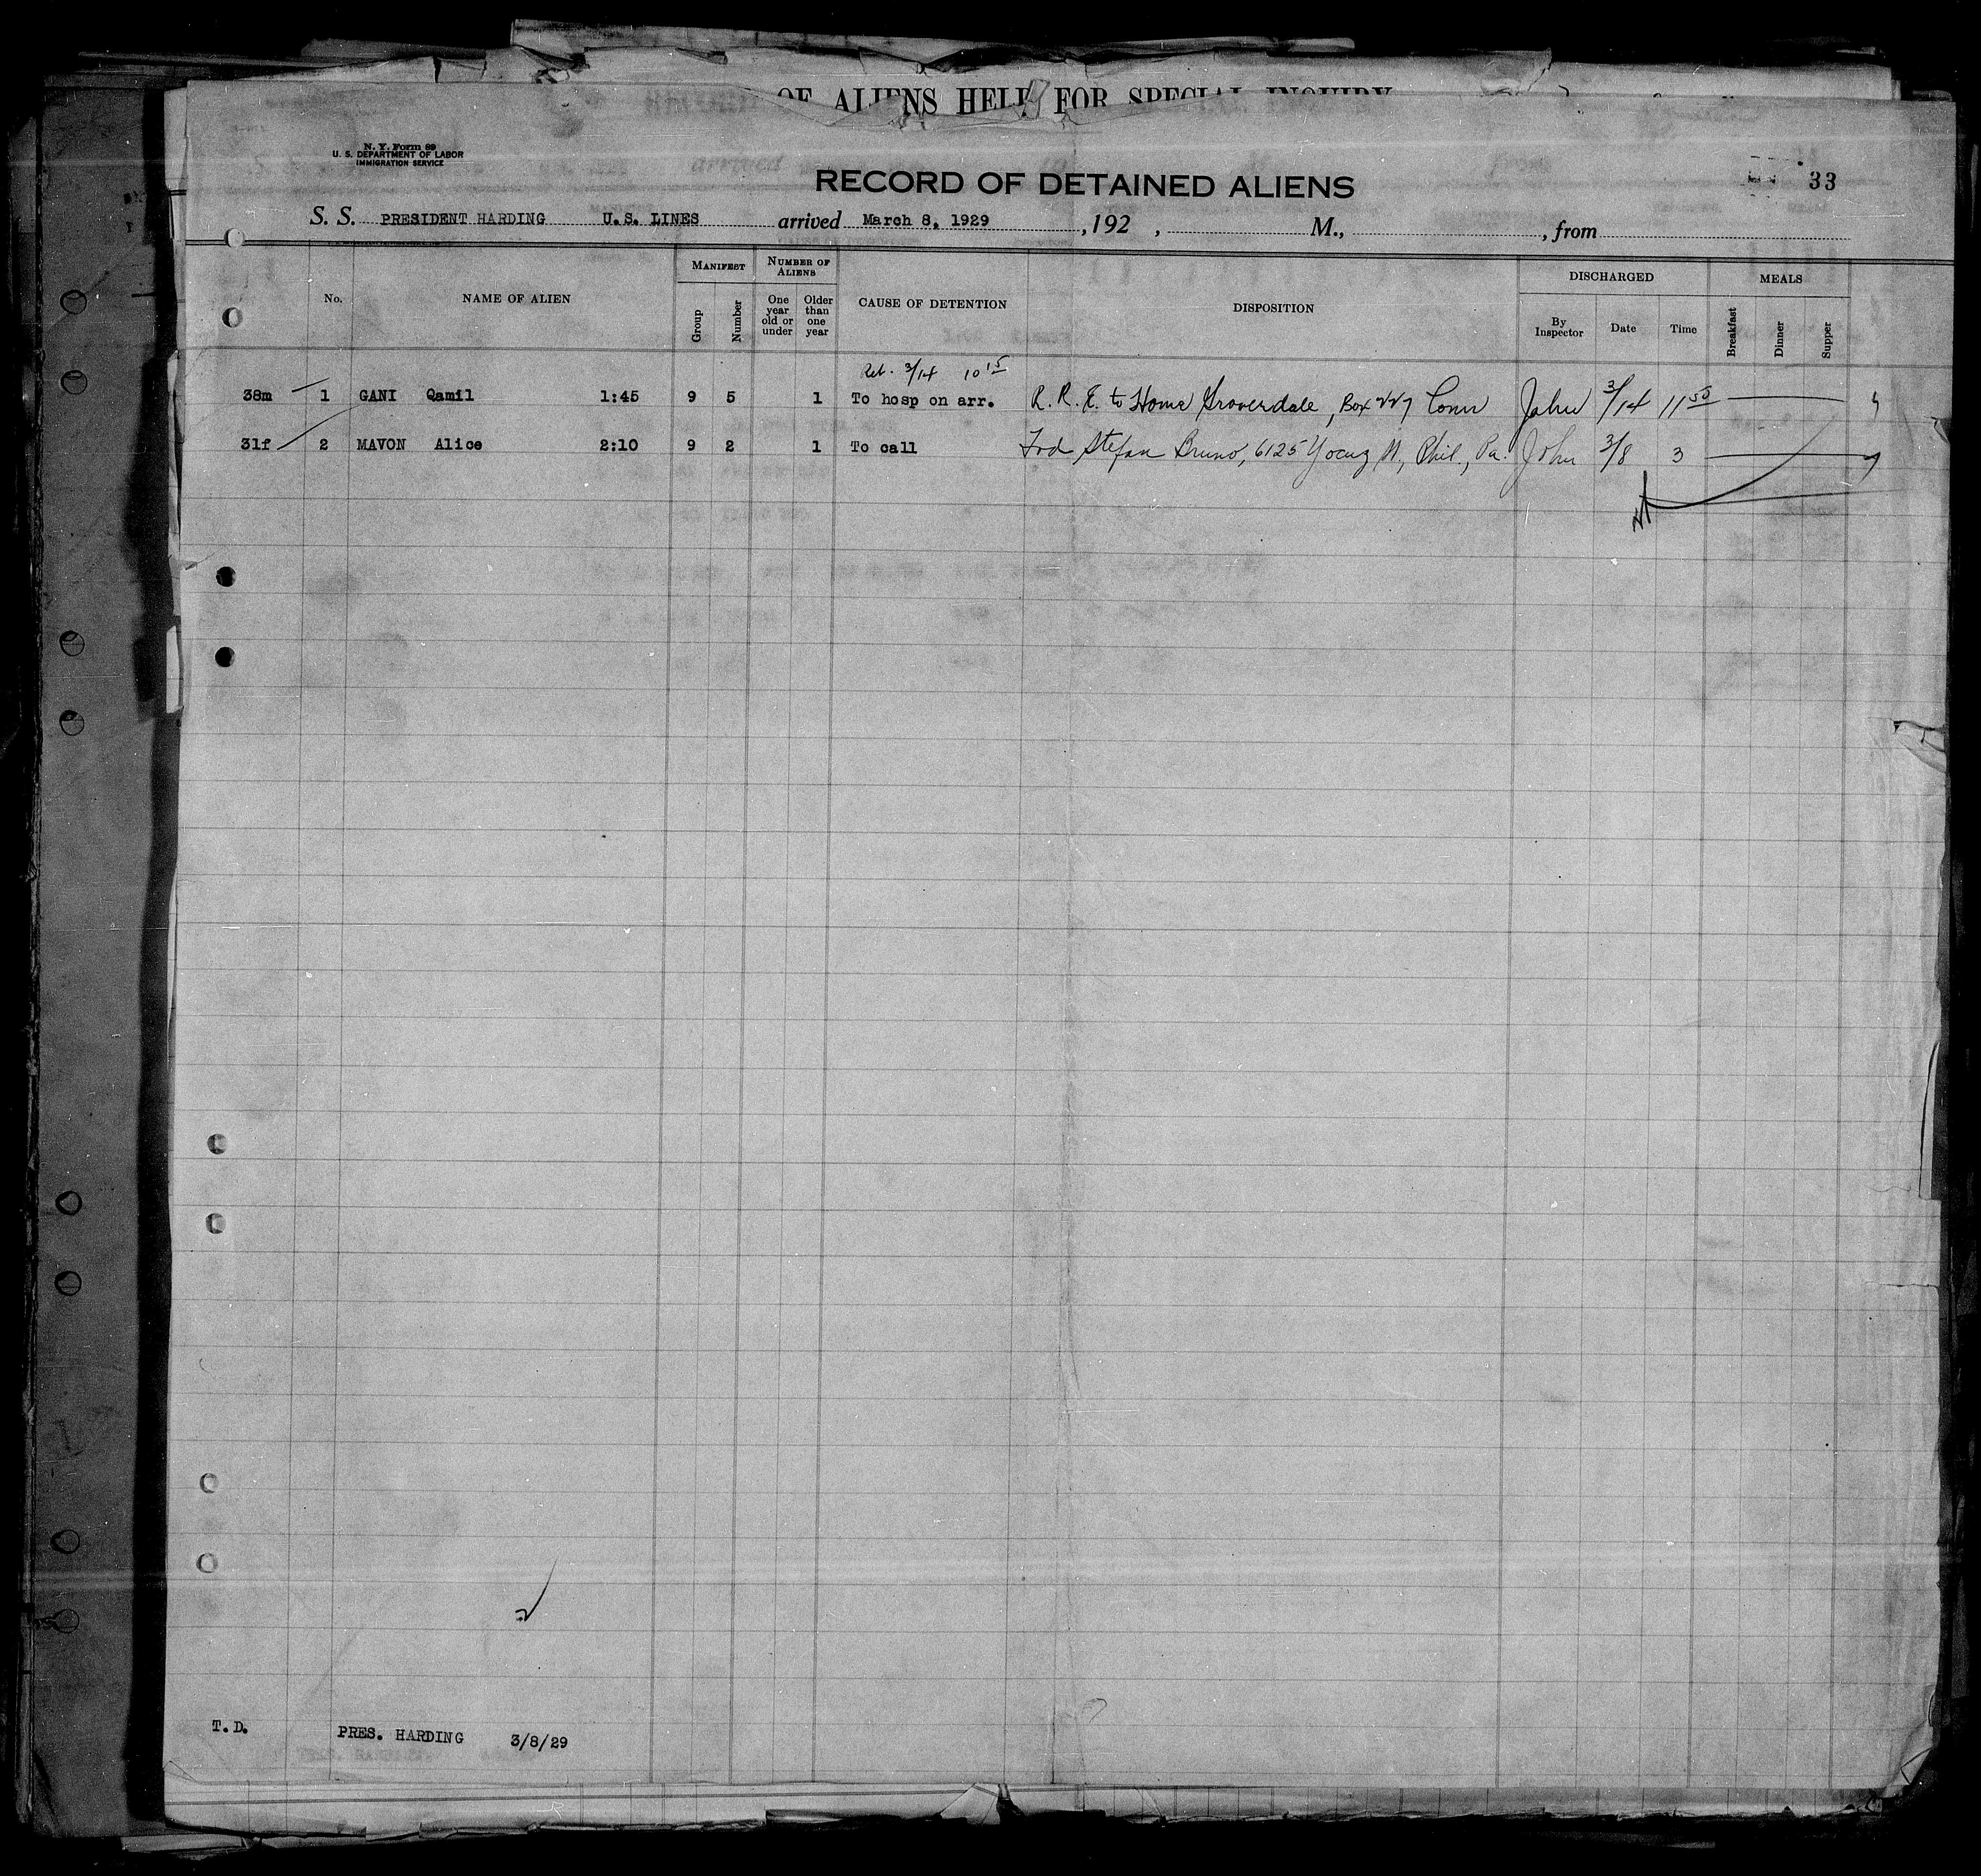 OF ALIENS HELD FOR SPECIAL INQUIRY
N. Y. Form 89
U. S. DEPARTMENT OF LABOR
IMMIGRATION SERVICE
RECORD OF DETAINED ALIENS
33
S. S. PRESIDENT HARDING U.S. LINES arrived March 8, 1929 , 192 , M., , from
No. NAME OF ALIEN MANIFEST Group Number NUMBER OF ALIENS One year old or under Older than one year CAUSE OF DETENTION DISPOSITION DISCHARGED By Inspector Date Time MEALS Breakfast Dinner Supper
3/14 10 15
38m 1 GANI Qamil 1:45 9 5 1 To hosp on arr. R. R. E. to Home Groverdale, Box 227 Conn John 3/14 11 50
31f 2 MAVON Alice 2:10 9 2 1 To call Stefan Bruno, 6125 Phil., Pa. John 3/8 3
T.D. PRES. HARDING 3/8/29